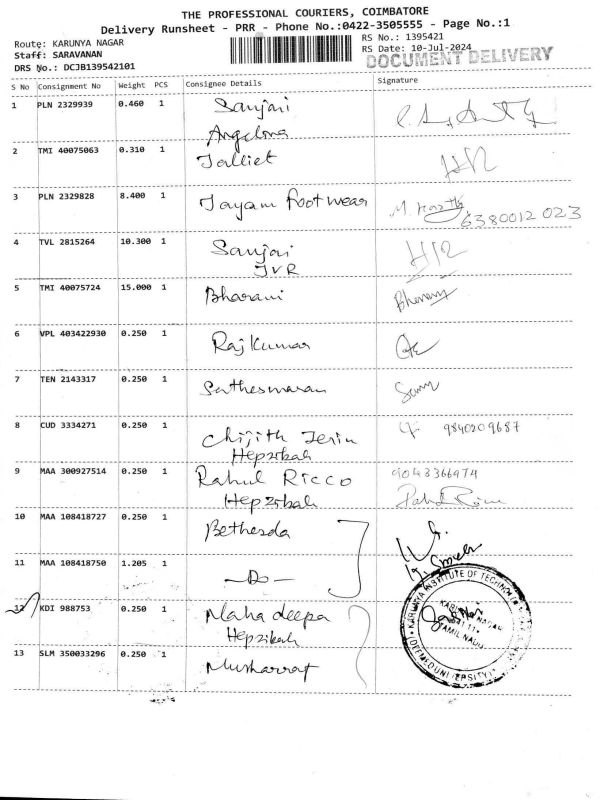 THE PROFESSIONAL COURIERS, COIMBATORE
Delivery Runsheet - PRR - Phone No.:0422-3505555 - Page No.:1
Route: KARUNYA NAGAR
RS No.: 1395421
Staff: SARAVANAN
RS Date: 10-Jul-2024
DRS No.: DCJB139542101
DOCUMENT DELIVERY
S No Consignment No Weight PCS Consignee Details Signature
1 PLN 2329939 0.460 1 Sanjai
Angelona
2 TMI 40075063 0.310 1 Talliet
3 PLN 2329828 8.400 1 Jayam footwear
6380012023
4 TVL 2815264 10.300 1 Sanjai
JVR
5 TMI 40075724 15.000 1 Bharani
6 VPL 403422930 0.250 1 Raj Kumar
7 TEN 2143317 0.250 1 Satheswaran
8 CUD 3334271 0.250 1 Chijith Jerin 9840209687
Hepzibah
9 MAA 300927514 0.250 1 Rahul Ricco 9043366974
Hepzibah
10 MAA 108418727 0.250 1 Bethesda
11 MAA 108418750 1.205 1 -Do-
12 KDI 988753 0.250 1 Maha deepa
Hepzibah
13 SLM 350033296 0.250 1 Musharraf
KARUNYA INSTITUTE OF TECHNOLO
KARUNYA NAGAR
TAMIL NADU
(DEEMED UNIVERSITY)